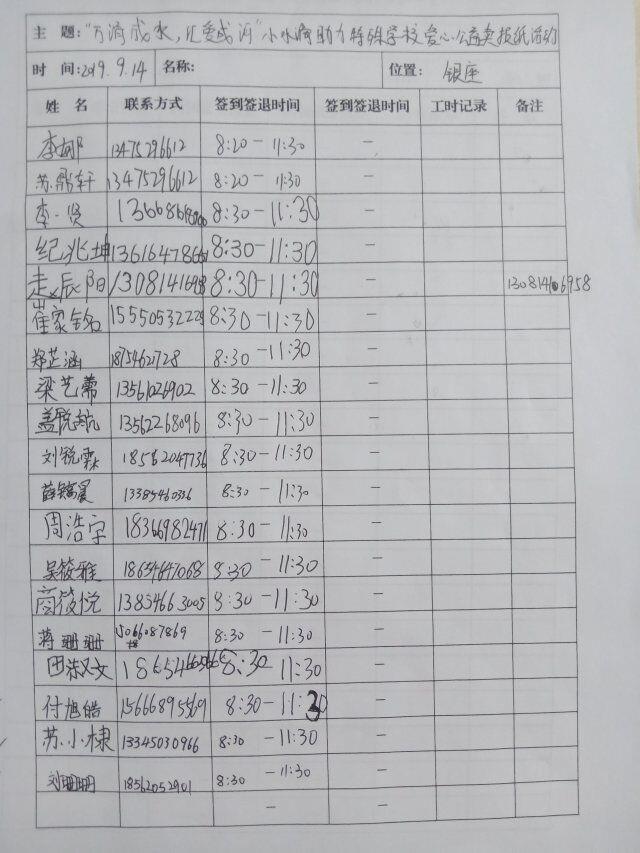 主 题:"万滴成水,汇爱成河"小水滴助力特殊学校爱心公益卖报纸活动
时 间:2019.9.14 名称: 位置: 银座
姓 名 联系方式 签到签退时间 签到签退时间 工时记录 备注
李娜 13475296612 8:20-11:30 -
苏鼎轩 13475296612 8:20-11:30 -
李一贤 8:30-11:30 -
纪兆坤 8:30-11:30 -
赵辰阳 8:30-11:30 -
崔家铭 15550532229 8:30-11:30 -
郑芷涵 8:30-11:30 -
梁艺蕾 8:30-11:30 -
盖悦航 13562268096 8:30-11:30 -
刘锐霖 18562047736 8:30-11:30 -
薛镐晨 13385460336 8:30-11:30 -
周浩宇 18366982471 8:30-11:30 -
吴筱雅 18654647068 8:30-11:30 -
商筱悦 13854663005 8:30-11:30 -
蒋珊珊 15066087869 8:30-11:30 -
田淑文 8:30-11:30 -
付旭皓 15666895569 8:30-11:30 -
苏小棣 13345030966 8:30-11:30 -
刘珊珊 18562052901 8:30-11:30 -
- -